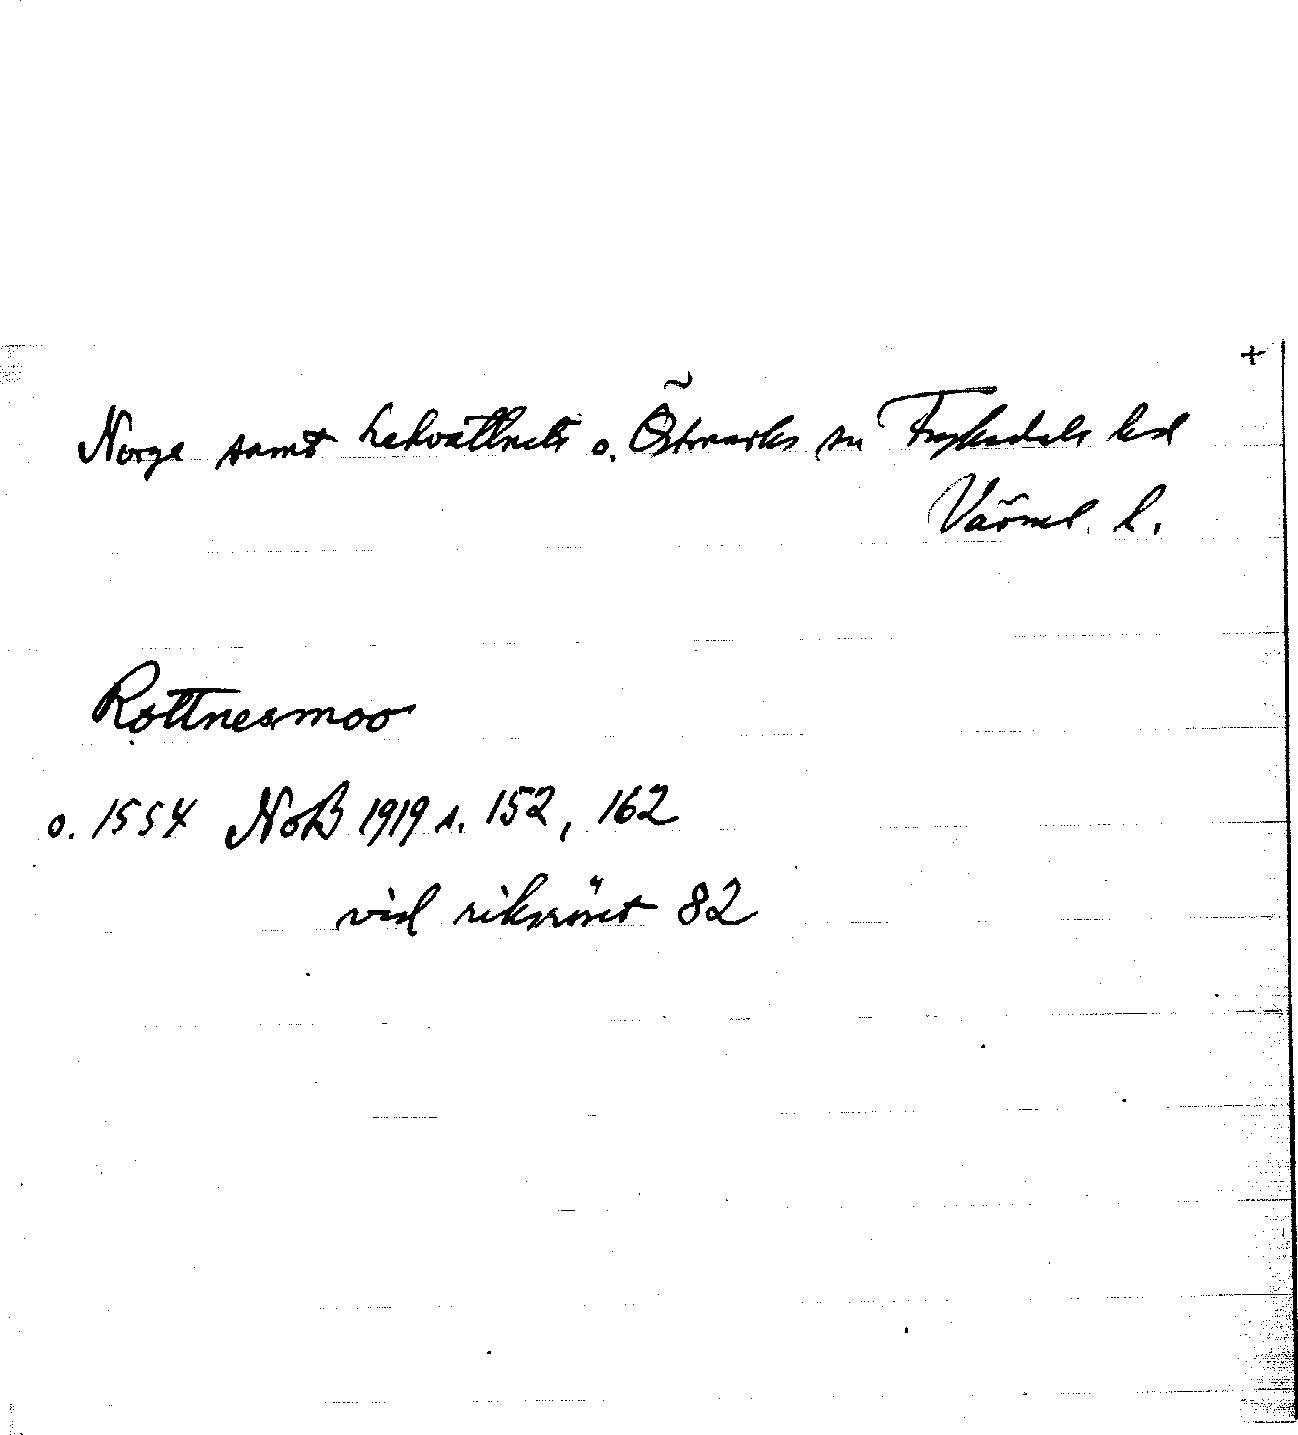 +
Norge samt Lekvattnets o. Östmarks sn Fryksdals hd
Värml. l.
Rottnesmoo
o. 1554 NoB 1919 s. 152, 162
vid riksröset 82